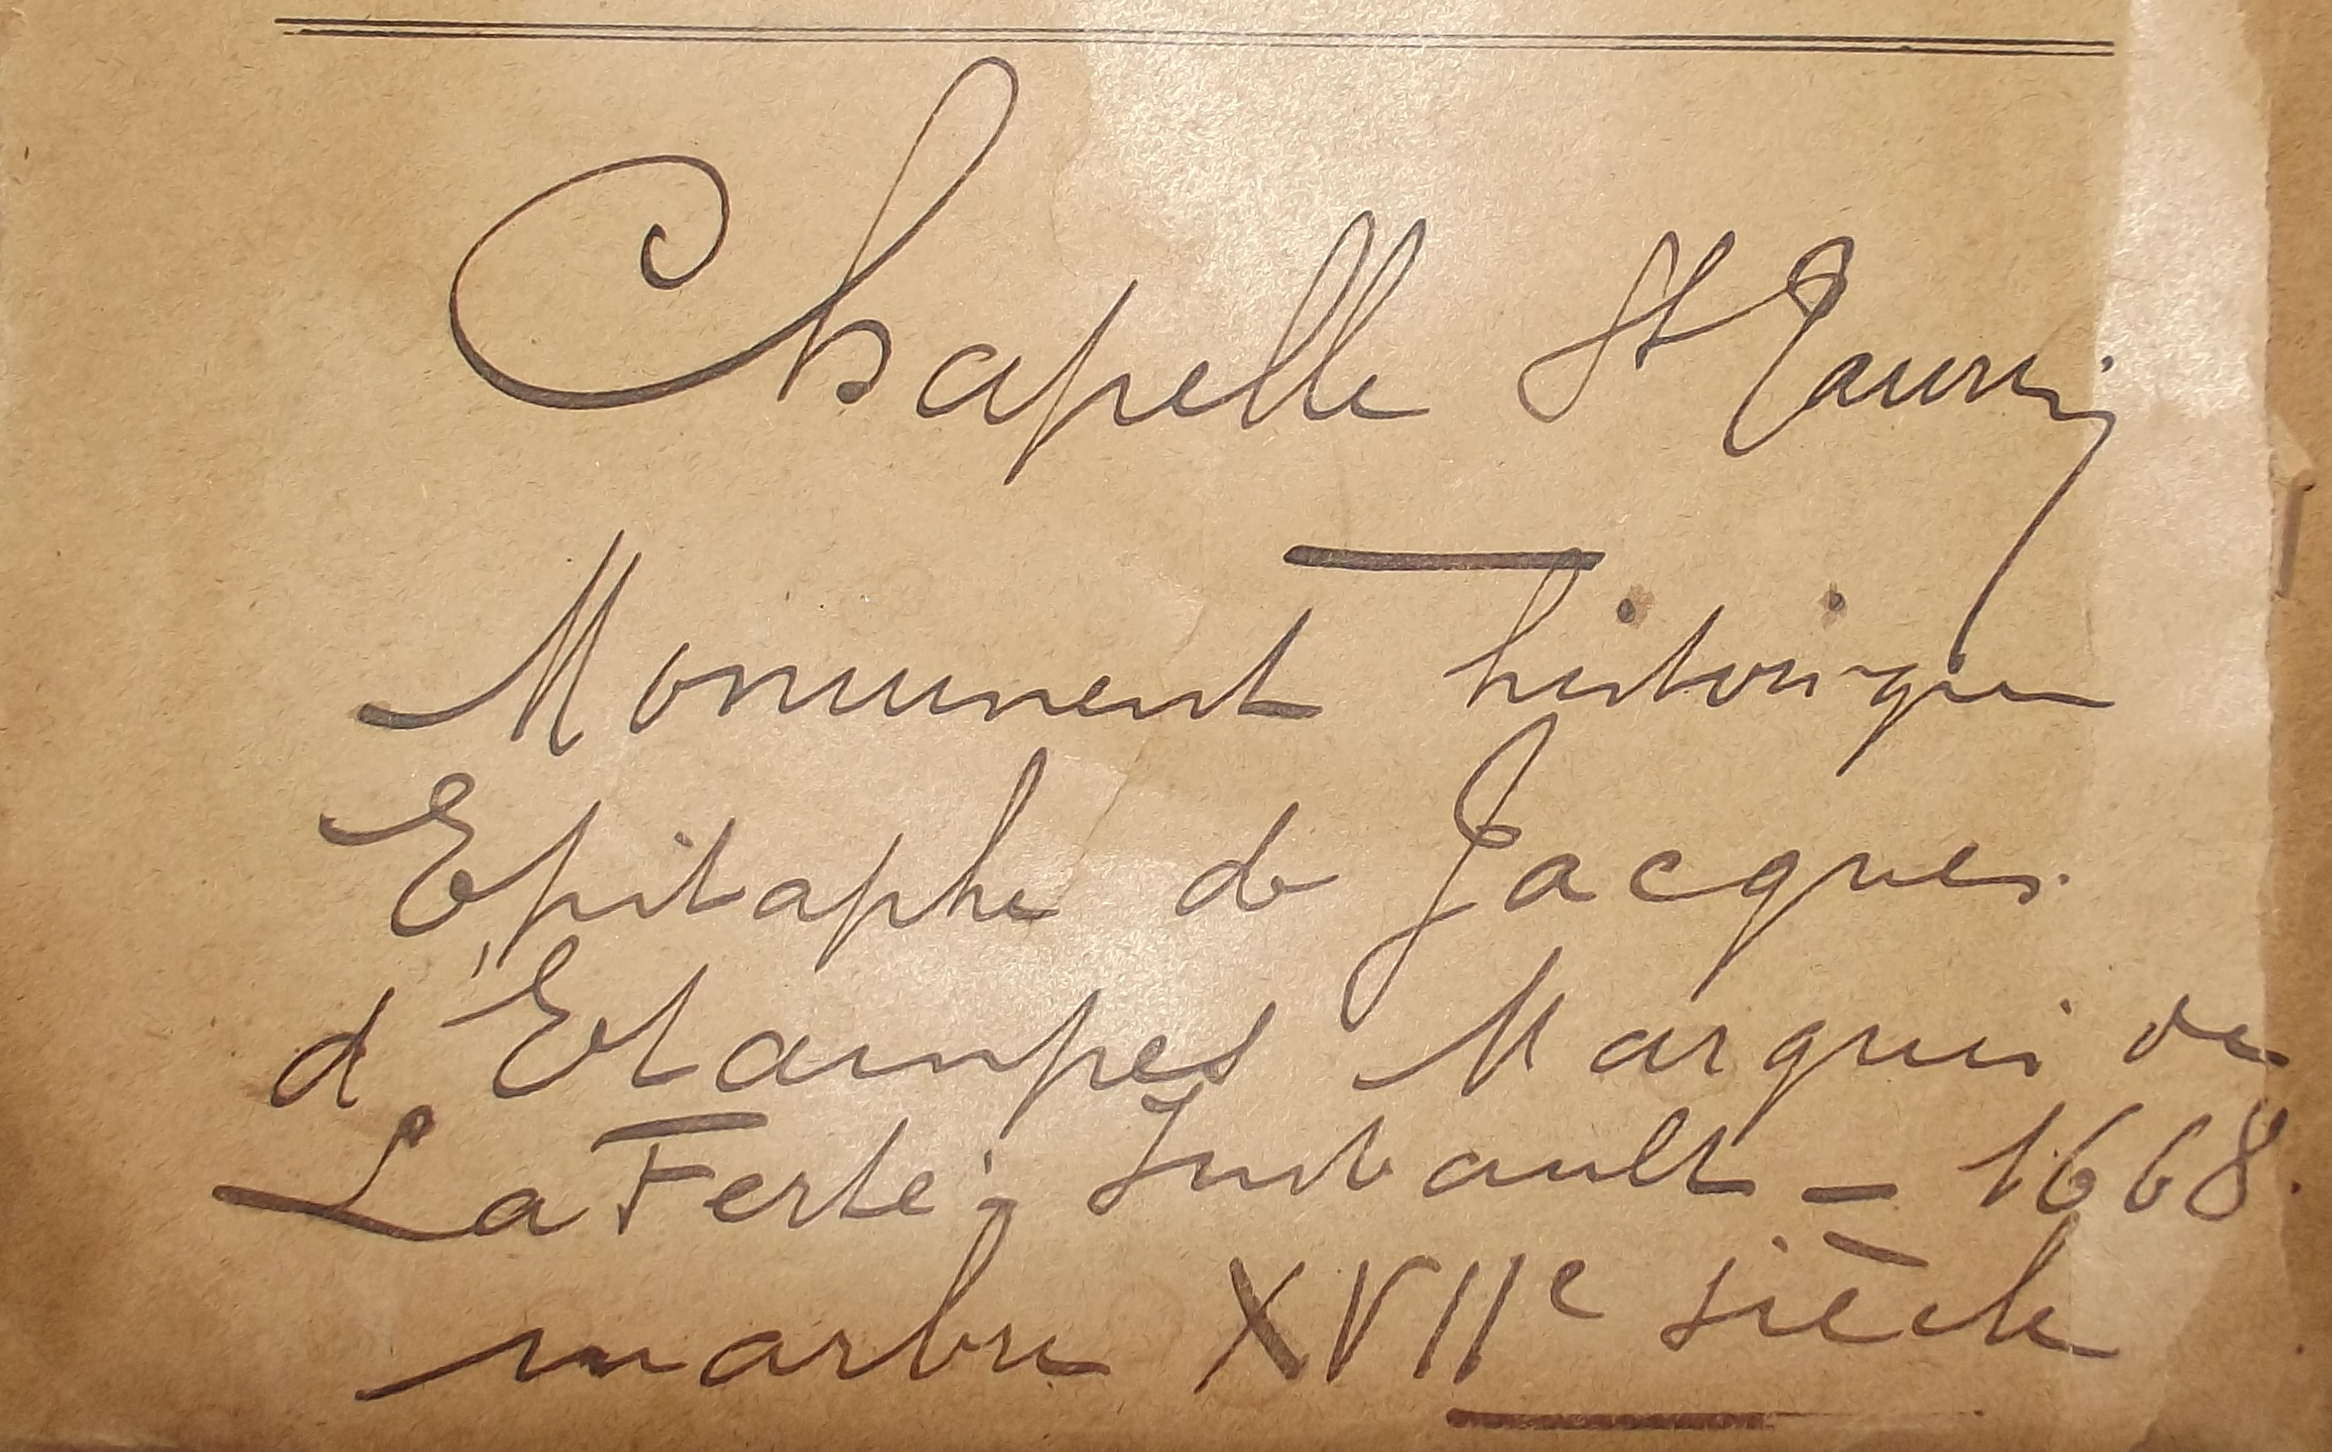 Chapelle St Taurin
Monument historique
Epitaphe de Jacques
d'Etampes Marquis de
La Ferté-Imbault - 1668
marbre XVIIe siècle